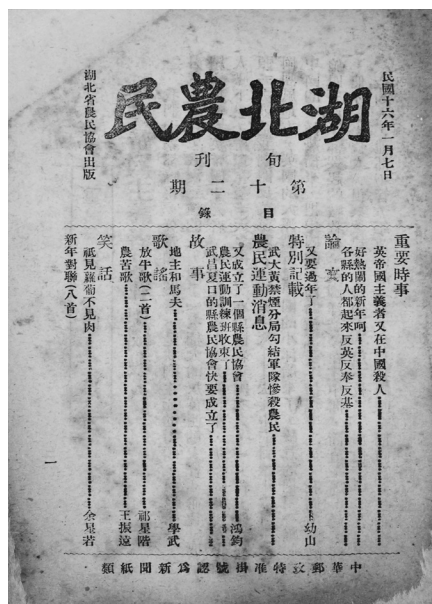 民國十六年一月七日
湖北農民
旬刊
第十二期
湖北省農民協會出版
目錄
重要時事
英帝國主義者又在中國殺人
好熱鬧的新年呵
各縣的人都起來反英反奉反基
論文
又要過年了 幼山
特別記載
武大黃禁煙分局勾結軍隊慘殺農民
農民運動消息
又成立了一個縣農民協會 鴻鈞
農民運動訓練班收束了
武昌夏口的縣農民協會快要成立了
故事
地主和馬夫 學武
歌謠
放牛歌(二首) 祁星階
農苦歌 王振遠
笑話
祗見蘿蔔不見肉 余星若
新年對聯(八首)
一
中華郵政特准掛號認爲新聞紙類